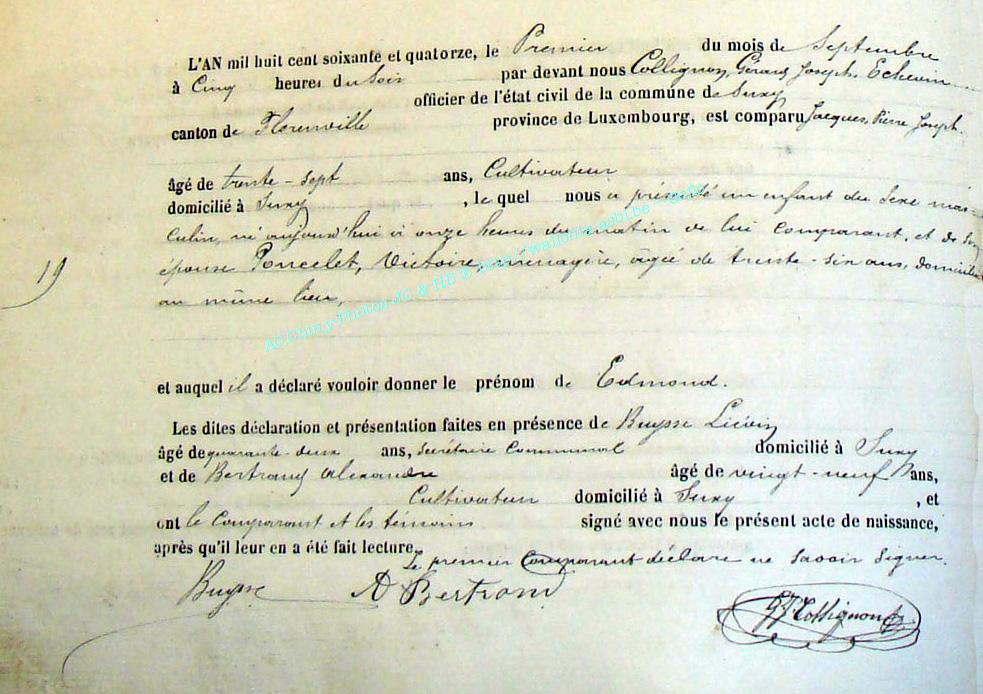 L'AN mil huit cent soixante et quatorze, le Premier du mois de Septembre
à Cinq heures du Soir par devant nous Collignon, Gérard Joseph, Echevin
officier de l'état civil de la commune de Suxy
canton de Florenville province de Luxembourg, est comparu Jacques, Pierre Joseph.
âgé de trente-sept ans, Cultivateur
domicilié à Suxy, le quel nous a présenté un enfant du Sexe mas-
culin, né aujourd'hui à onze heures du matin de lui comparant, et de Son
épouse Poncelet, Victoire, ménagère, agée de trente-six ans, domiciliée
au même lieu,
19
et auquel il a déclaré vouloir donner le prénom de Edmond.
Les dites déclaration et présentation faites en présence de Buysse Liévin
âgé de quarante-deux ans, Secrétaire Communal domicilié à Suxy
et de Bertrand Alexandre âgé de vingt-neuf ans,
Cultivateur domicilié à Suxy, et
ont le Comparant et les témoins signé avec nous le présent acte de naissance,
après qu'il leur en a été fait lecture.
Le premier Comparant déclare ne savoir signer.
Buysse A Bertrand
GJ Collignon
AC Chiny Photos JC & HB